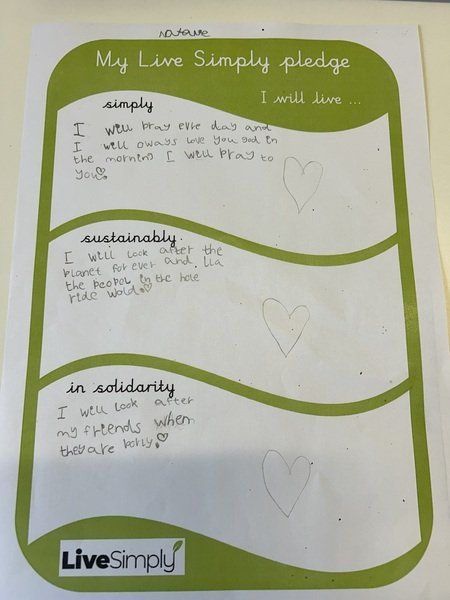 My Live Simply pledge
I will live ...
simply
I will pray evre day and
I will oways love you god in
the morning I will pray to
you
sustainably
I will look after the
planet for ever and
the peopol in the hole
ride wold.
in solidarity
I will look after
my friends when
they are
LiveSimply